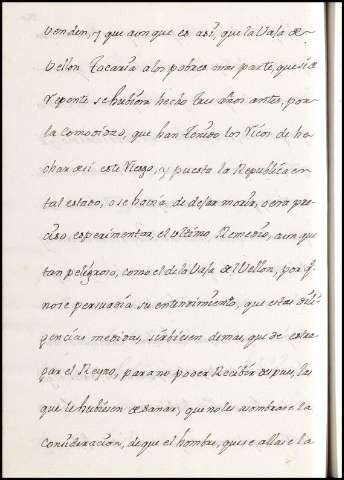 venden, y que aunque es asi, que la Vaja de
Vellon tocaria a los pobres mas parte, que si de
repente se hubiera hecho tres años antes, por
la comodidad, que han tenido los Ricos de he
char de si este riesgo, y puesta la Republica en
tal estado, o se havia de dejar morir, o era pre
ciso, experimentar, el ultimo Remedio, aunque
tan peligroso, como el de la Vaja de Vellon, por q.
no se persuadia su entendimiento, que estas dili
gencias medidas, sirbiesen de mas, que de estra
gar el Reyno, para no poder Recibir despues, las
que le hubiesen de sanar, que no les asombrase la
consideracion, de que el hombre, que se allase la